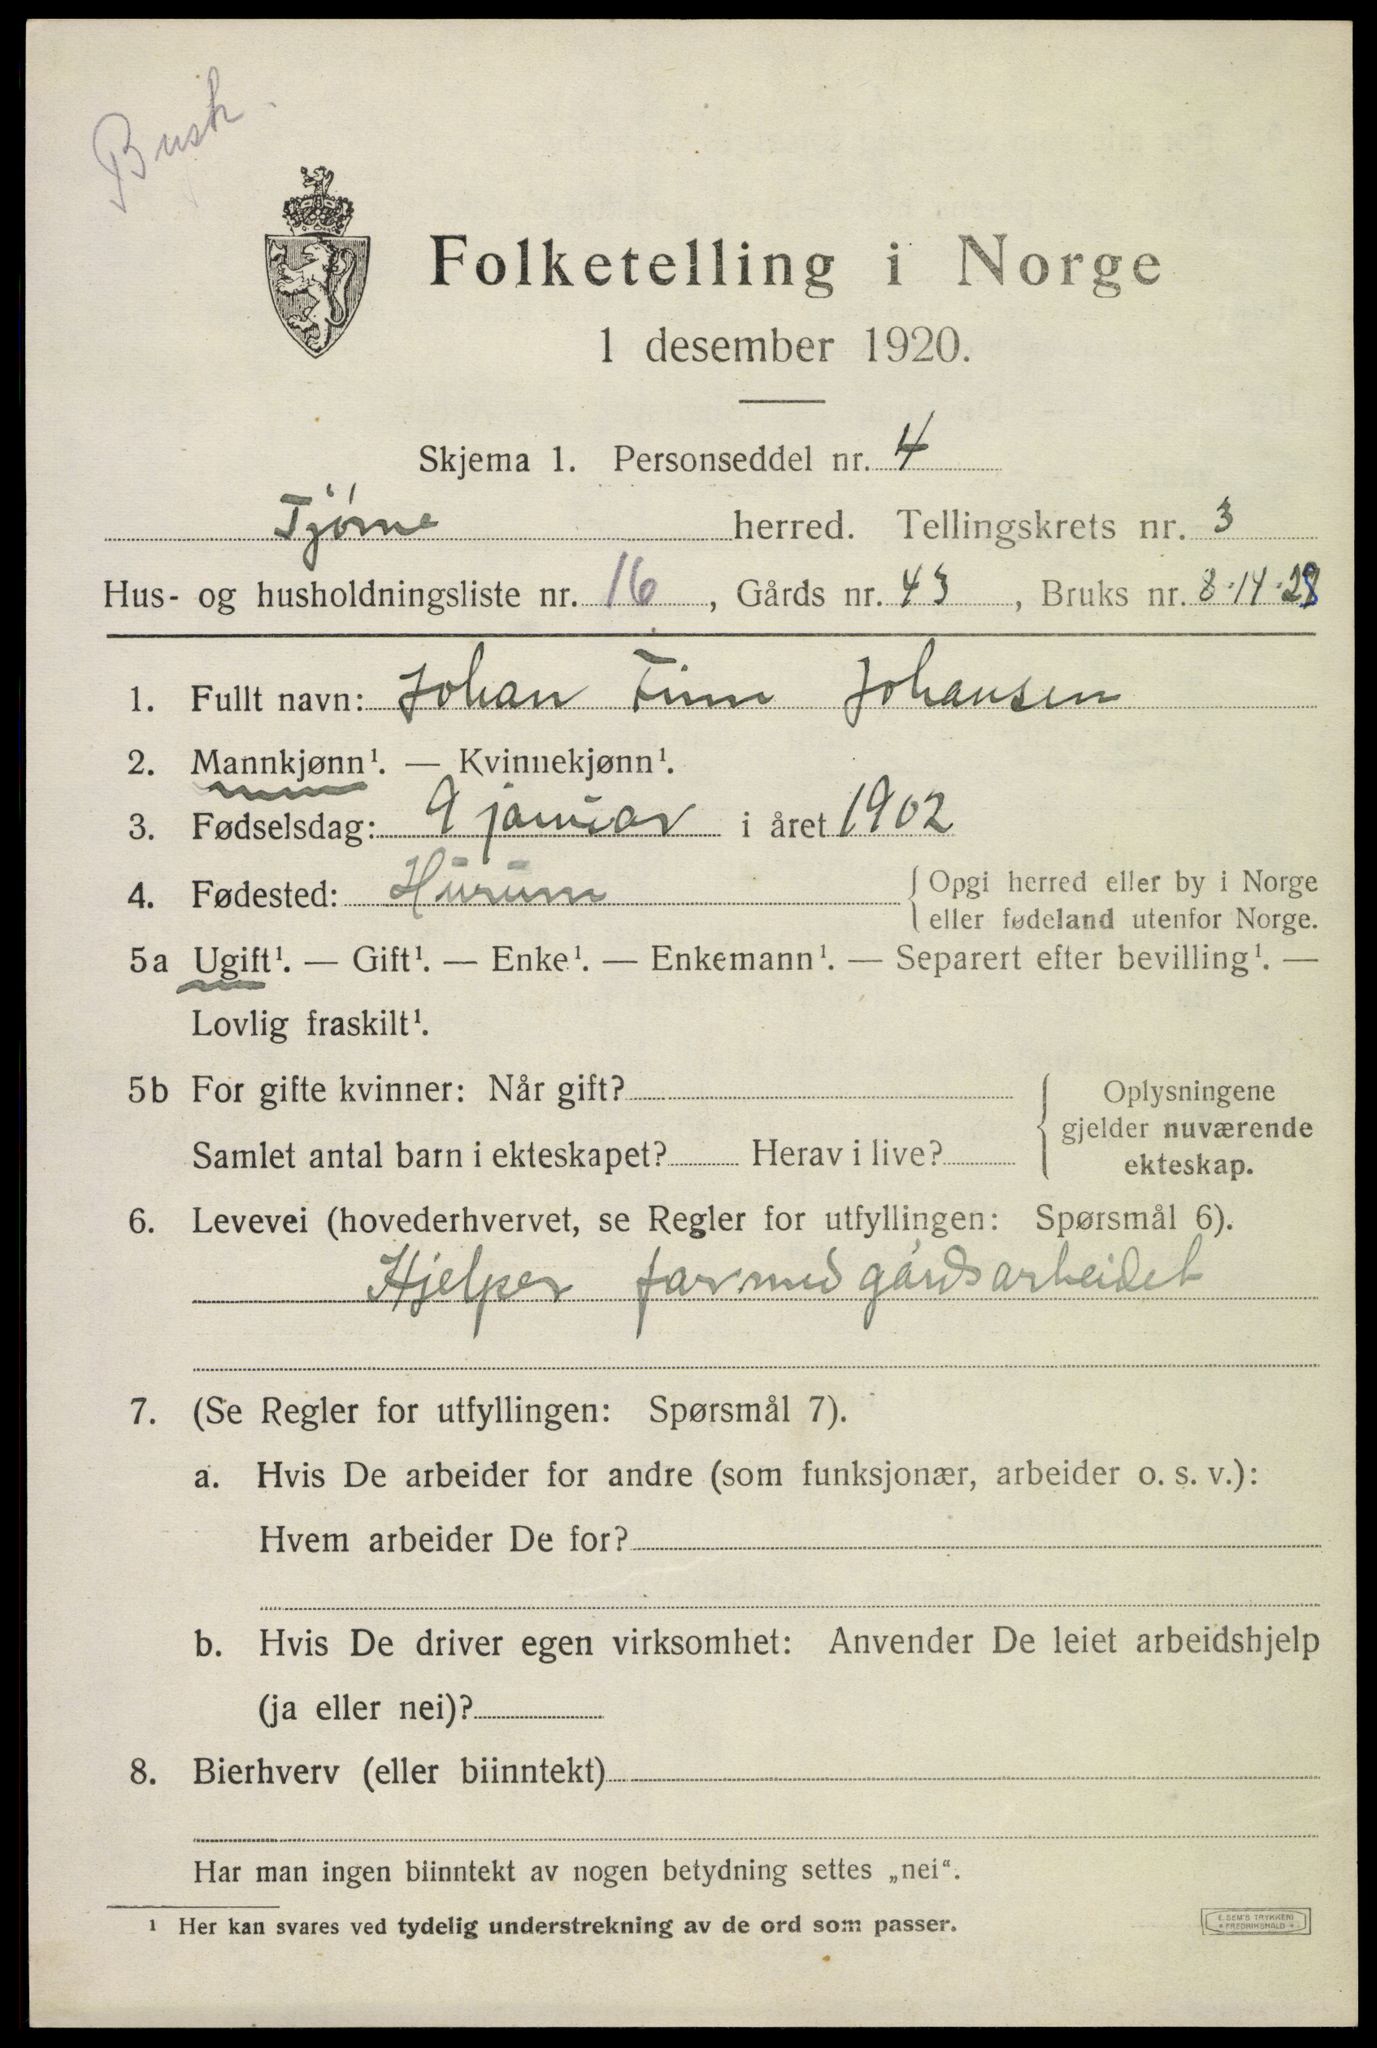 Busk.
Folketelling i Norge
1 desember 1920.
Skjema 1. Personseddel nr. 4
Tjøme herred. Tellingskrets nr. 3
Hus- og husholdningsliste nr. 16, Gårds nr. 43, Bruks nr. 8-14-28
1. Fullt navn: Johan Finn Johansen
2. Mannkjønn¹. — Kvinnekjønn¹.
3. Fødselsdag: 9 januar i året 1902
4. Fødested: Hurum { Opgi herred eller by i Norge
eller fødeland utenfor Norge.
5a Ugift¹. — Gift¹. — Enke¹. — Enkemann¹. — Separert efter bevilling¹. —
Lovlig fraskilt¹.
5b For gifte kvinner: Når gift? { Oplysningene
gjelder nuværende
Samlet antal barn i ekteskapet? Herav i live? ekteskap.
6. Levevei (hovederhvervet, se Regler for utfyllingen: Spørsmål 6).
Hjelper far med gårdsarbeidet
7. (Se Regler for utfyllingen: Spørsmål 7).
a. Hvis De arbeider for andre (som funksjonær, arbeider o. s. v.):
Hvem arbeider De for?
b. Hvis De driver egen virksomhet: Anvender De leiet arbeidshjelp
(ja eller nei)?
8. Bierhverv (eller biinntekt)
Har man ingen biinntekt av nogen betydning settes „nei“.
¹ Her kan svares ved tydelig understrekning av de ord som passer.
E. SEM'S TRYKKERI
FREDRIKSHALD